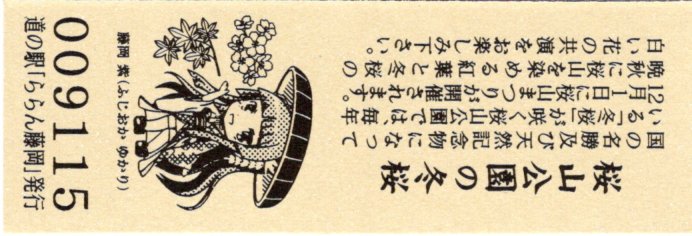 桜山公園の冬桜
国の名勝及び天然記念物になって
いる「冬桜」が咲く桜山公園では、毎年
12月1日に桜山まつりが開催されます。
晩秋に桜山を染める紅葉と冬桜の
白い花の共演をお楽しみ下さい。
藤岡 紫(ふじおか ゆかり)
009115
道の駅「ららん藤岡」発行